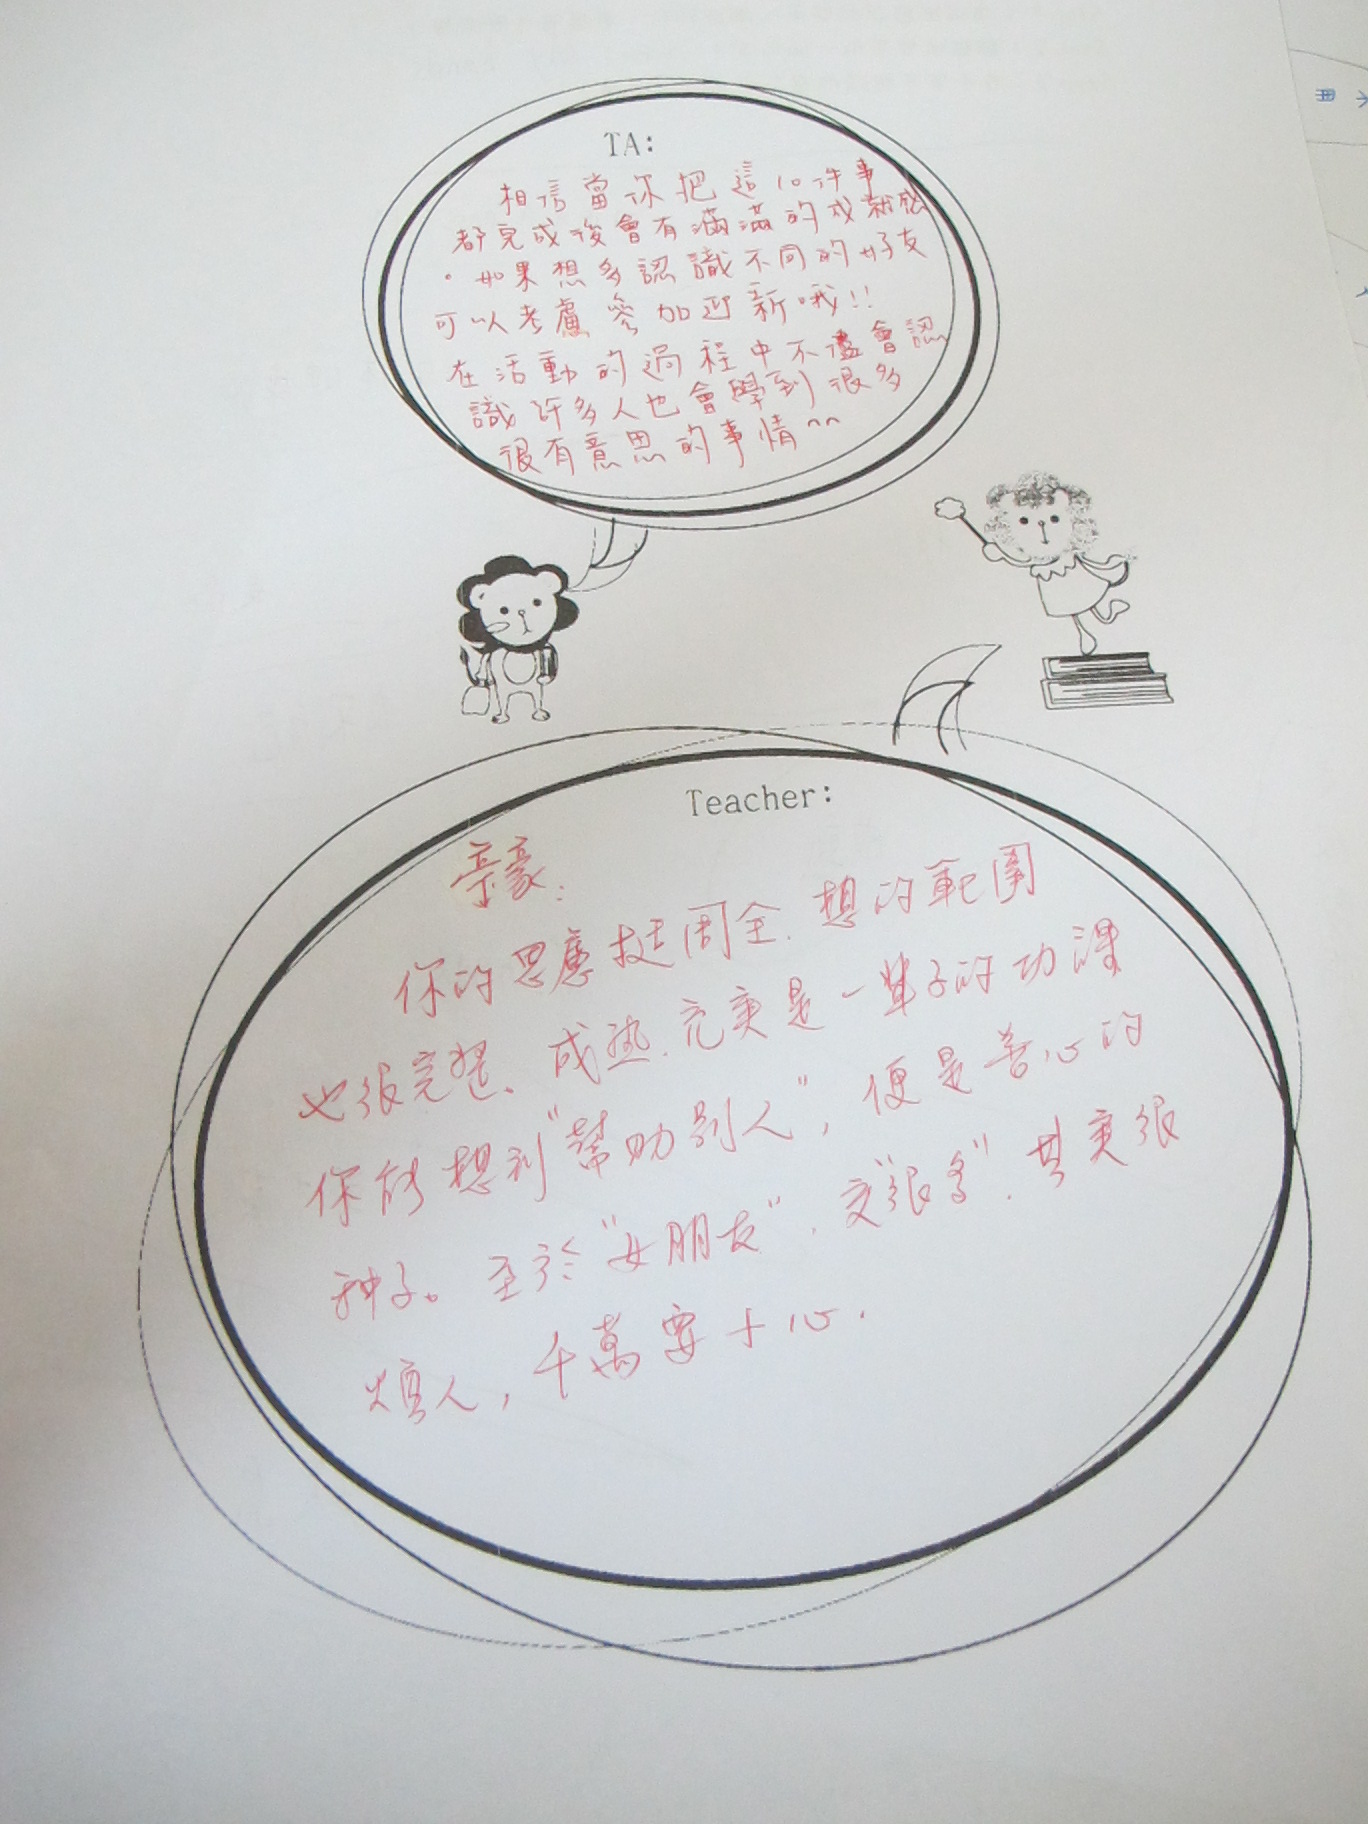 TA:
相信當你把這10件事
都完成後會有滿滿的成就感
。如果想多認識不同的好友
可以考慮參加迎新哦!!
在活動的過程中不儘會認
識許多人也會學到很多
很有意思的事情^^
Teacher:
豪:
你的思慮挺周全.想的範圍
也很完整、成熟.充實是一輩子的功課
你能想到"幫助別人",便是善心的
種子。至於"女朋友".交"很多".其實很
煩人,千萬要小心.
用